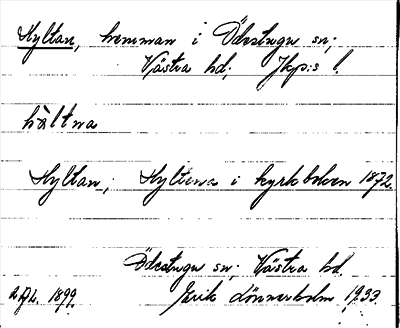 Hyltan, hemman i Ödestugu sn;
Västra hd; Jkp:s l.
hàltna
Hyltan; Hyltena i kyrkboken 1872.
Ödestugu sn; Västra hd.
1899. Erik Lönnerholm 1933.